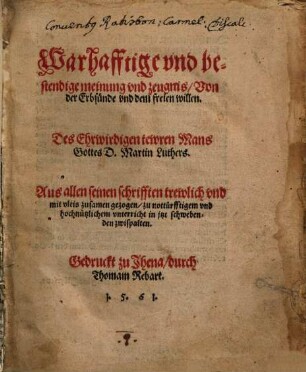 Conventus Ratisbon: Carmel: Discalc.
Warhafftige vnd be-
stendige meinung vnd zeugnis / Von
der Erbsünde vnd dem freien willen.
Des Ehrwirdigen tewren Mans
Gottes D. Martin Luthers.
Aus allen seinen schrifften trewlich vnd
mit vleis zusamen gezogen / zu notturfftigem vnd
hochnützlichem vnterricht in jtzt schweben-
den zwispalten.
Gedruckt zu Jhena / durch
Thomam Rebart.
1. 5. 6 1.